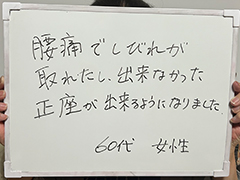 腰痛でしびれが
取れたし、出来なかった
正座が出来るようになりました
60代 女性